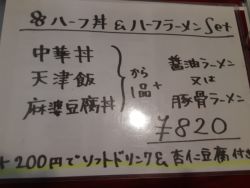 8 ハーフ丼 & ハーフラーメン Set
中華丼
天津飯
麻婆豆腐丼
から
1品
+
醤油ラーメン
又は
豚骨ラーメン
¥820
+200円でソフトドリンク& 杏仁豆腐付き